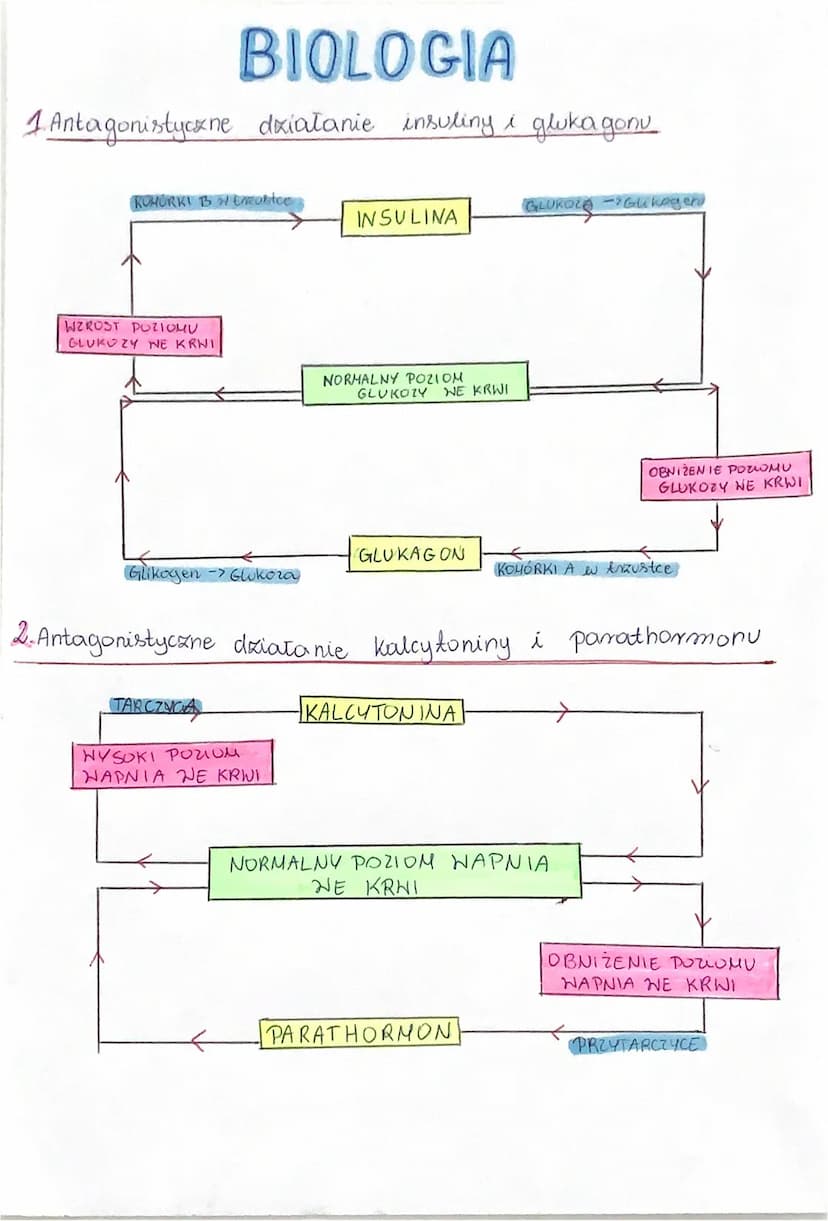 BIOLOGIA
1. Antagonistyczne działanie insuliny i glukagonu
KOMÓRKI B w trzustce
INSULINA
GLUKOZA -> Glikogen
WZROST POZIOMU
GLUKOZY WE KRWI
NORMALNY POZIOM
GLUKOZY WE KRWI
OBNIŻENIE POZIOMU
GLUKOZY WE KRWI
GLUKAGON
Glikogen -> Glukoza
KOMÓRKI A w trzustce
2. Antagonistyczne działanie kalcytoniny i parathormonu
TARCZYCA
KALCYTONINA
WYSOKI POZIOM
WAPNIA WE KRWI
NORMALNY POZIOM WAPNIA
WE KRWI
OBNIŻENIE POZIOMU
WAPNIA WE KRWI
PARATHORMON
PRZYTARCZYCE